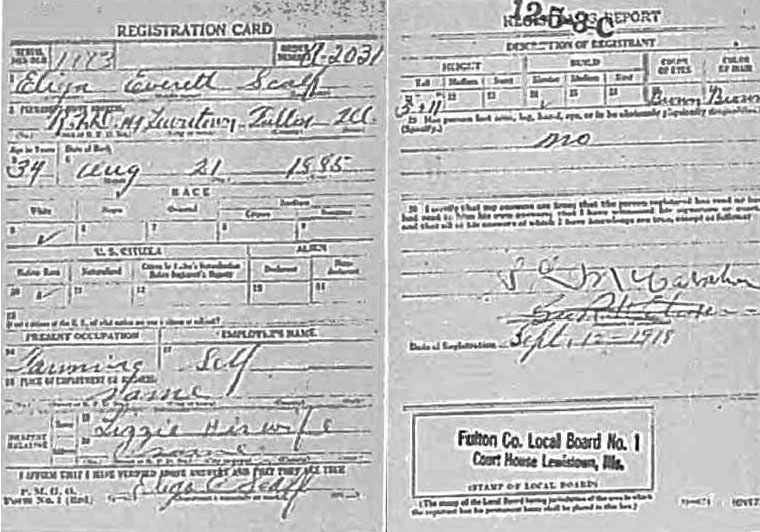 REGISTRATION CARD
SERIAL NUMBER 1173 ORDER NUMBER 2031
1 Elija Everett Scalf
2 PERMANENT HOME ADDRESS:
R.F.D. #4 Fulton Ill.
Age in Years Date of Birth
34 Aug 21 1885
RACE
White Negro Oriental Indian
Citizen
5 ✓ 6 7 8 9
U. S. CITIZEN ALIEN
Native Born Naturalized Citizen by Father's Naturalization Before Registrant's Majority Declarant Non-declarant
10 ✓ 11 12 13 14
15
If not a citizen of the U. S., of what nation are you a citizen or subject?
PRESENT OCCUPATION EMPLOYER'S NAME
16 Farming 17 Self
18 PLACE OF EMPLOYMENT OR BUSINESS:
Same
NEAREST RELATIVE Name 19 Lizzie His wife
Address 20 Same
I AFFIRM THAT I HAVE VERIFIED ABOVE ANSWERS AND THAT THEY ARE TRUE
P. M. G. O.
Form No. 1 (Red)
Elija E Scalf
REGISTRAR'S REPORT
12-5-3-C
DESCRIPTION OF REGISTRANT
HEIGHT BUILD COLOR OF EYES COLOR OF HAIR
Tall Medium Short Slender Medium Stout
5-11 22 23 24 ✓ 25 26 Brown Brown
29 Has person lost arm, leg, hand, eye, or is he obviously physically disqualified?
(Specify.)
no
30 I certify that my answers are true; that the person registered has read or has
had read to him his own answers; that I have witnessed his signature or mark,
and that all of his answers of which I have knowledge are true, except as follows:
Date of Registration Sept. 12 - 1918
Fulton Co. Local Board No. 1
Court House Lewistown, Ills.
(STAMP OF LOCAL BOARD)
(The stamp of the Local Board having jurisdiction of the area in which
the registrant has his permanent home shall be placed in this box.)